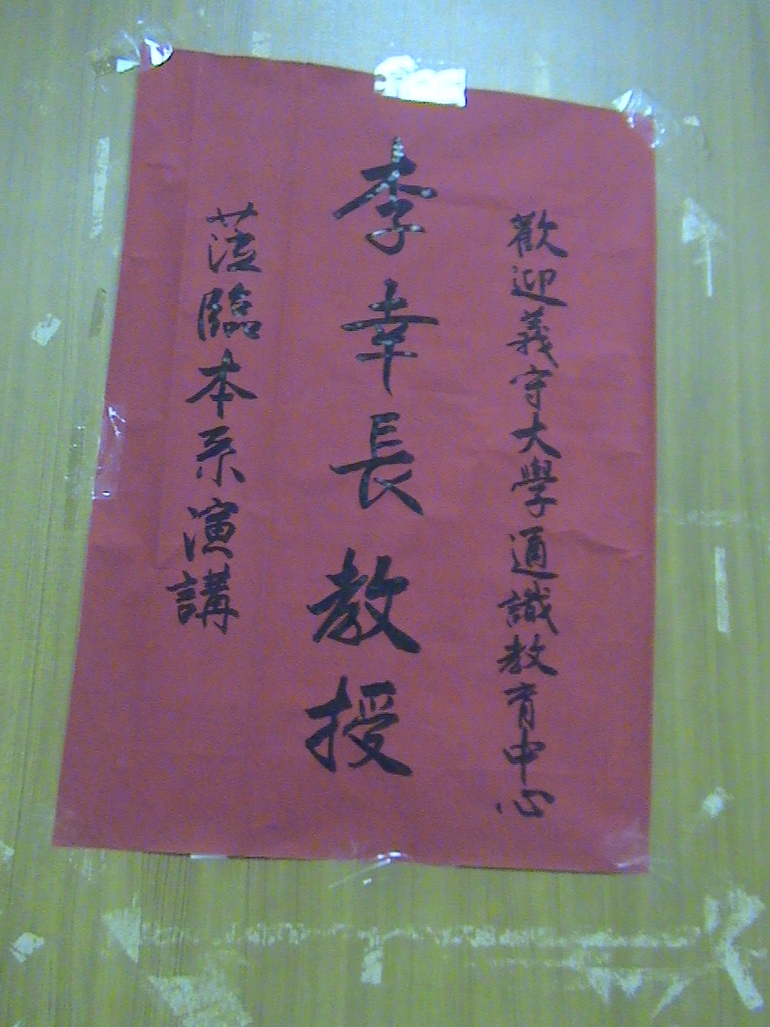 歡迎義守大學通識教育中心
李幸長教授
蒞臨本系演講